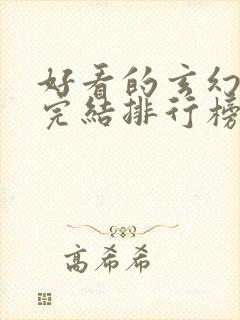 好看的玄幻
完結排行榜
高希希